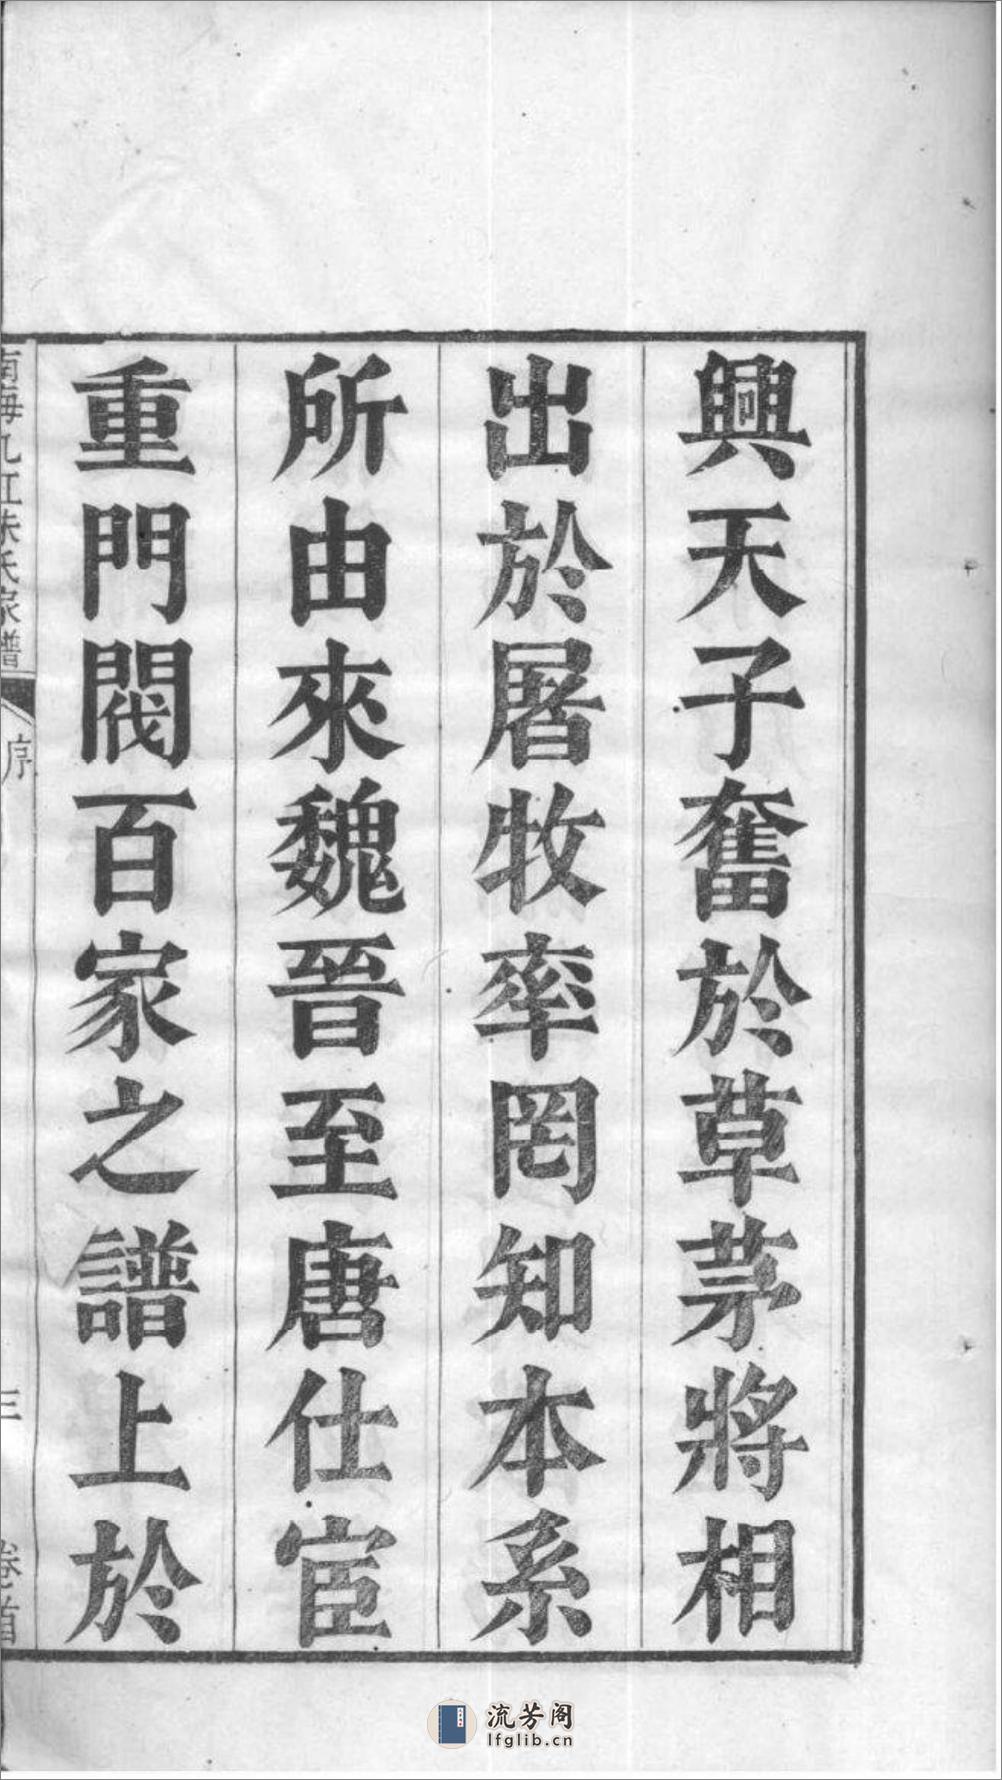 興天子奮於草茅將相
出於屠牧率罔知本系
所由來魏晉至唐仕宦
重門閥百家之譜上於
南海九江朱氏家譜
序
三
卷首
流芳阁
lfglib.cn